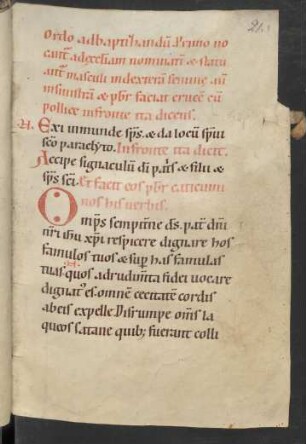 21.
Ordo ad baptizandũ. Primo no
cant᷑ ad ęcclesiam nominati & statu
unt᷑ masculi in dextera femine aũ
in sinistra & pb̅r faciat crucẽ cũ
pollice in fronte ita dicens.
Exi inmunde sp̅s & da locũ sp̅ui
sc̅o paraclyto. In fronte ita dicit.
Accipe signaculũ di̅ pat̅s & filii &
sp̅s sc̅i. Et facit eos pb̅r caticumi
nos his verbis.
Omp̅s sempit̅ne ds̅. pat̅ dn̅i
nr̅i ih̅u xp̅i respicere dignare hos
famulos tuos & sup̲ has famulas
tuas quos ad rudim̅ta fidei vocare
dignat᷒ es. omnẽ cecitatẽ cordis
ab eis expelle. Disrumpe om̅s la
queos satane quib; fuerant colli